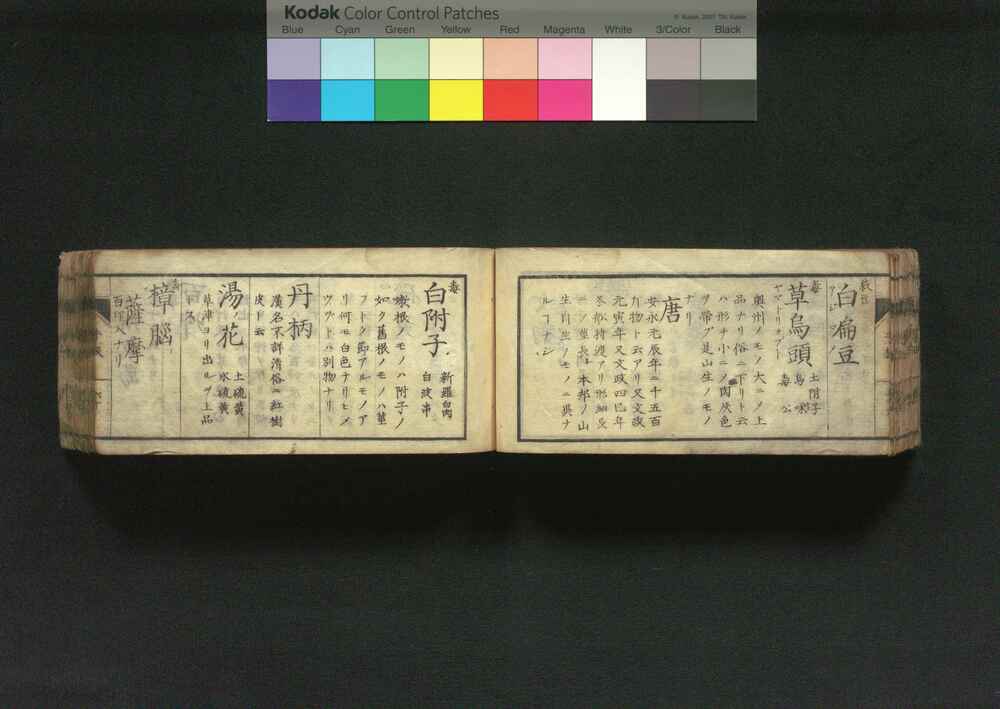 Kodak Color Control Patches
© Kodak, 2007 TM: Kodak
Blue Cyan Green Yellow Red Magenta White 3/Color Black
白扁豆
毒
草烏頭
土附子
烏喙
毒公
ヤマトリカブト
奥州ノモノ大ニノ上
品ナリ俗ニ下リト云
ハ形チ小ニノ肉灰色
ヲ帶ブ是山生ノモノ
ナリ
唐
安永元辰年ニ千五百
斤物ト云アリ又文政
元寅年又文政四巳年
ニノ莖長シ本邦ノ山
生川生ノモノニ異ナ
ルコナシ
毒
白附子
新羅白肉
白波串
嫩根ノモノハ附子ノ
如ク舊根ノモノハ菫
フトク節アルモノア
リ何モ白色ナリヒノ
ウヅトハ別物ナリ
丹柄
漢名不詳清俗ニ紅樹
皮ト云
湯ノ花
土硫黄
水硫黄
草津ヨリ出ルヲ上品
トス
樟腦
薩摩
百斤入ナリ